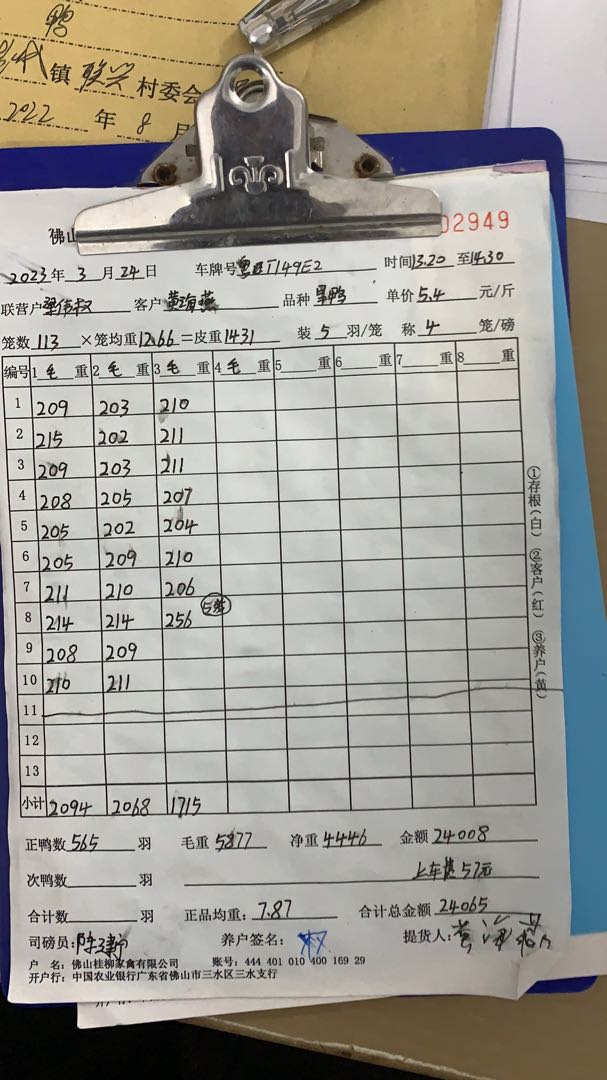 鸭
镇 联兴 村委会
2022 年 8 月
佛山
02949
2023年 3 月 24 日 车牌号 T149E2 时间13.20 至14.30
联营户 客户 黄海燕 品种 旱鸭 单价5.4 元/斤
笼数 113 ×笼均重12.66=皮重1431 装 5 羽/笼 称 4 笼/磅
编号 1 毛 重 2 毛 重 3 毛 重 4 毛 重 5 重 6 重 7 重 8 重
1 209 203 210
2 215 202 211
3 209 203 211
4 208 205 207
5 205 202 204
6 205 209 210
7 211 210 206
8 214 214 256 5笼
9 208 209
10 210 211
11
12
13
小计 2094 2068 1715
①存根(白) ②客户(红) ③养户(黄)
正鸭数 565 羽 毛重 5877 净重 4446 金额 24008
次鸭数 羽 上车费57元
合计数 羽 正品均重: 7.87 合计总金额 24065
司磅员: 养户签名: 提货人:
户 名: 佛山桂柳家禽有限公司 账号: 444 401 010 400 169 29
开户行: 中国农业银行广东省佛山市三水区三水支行